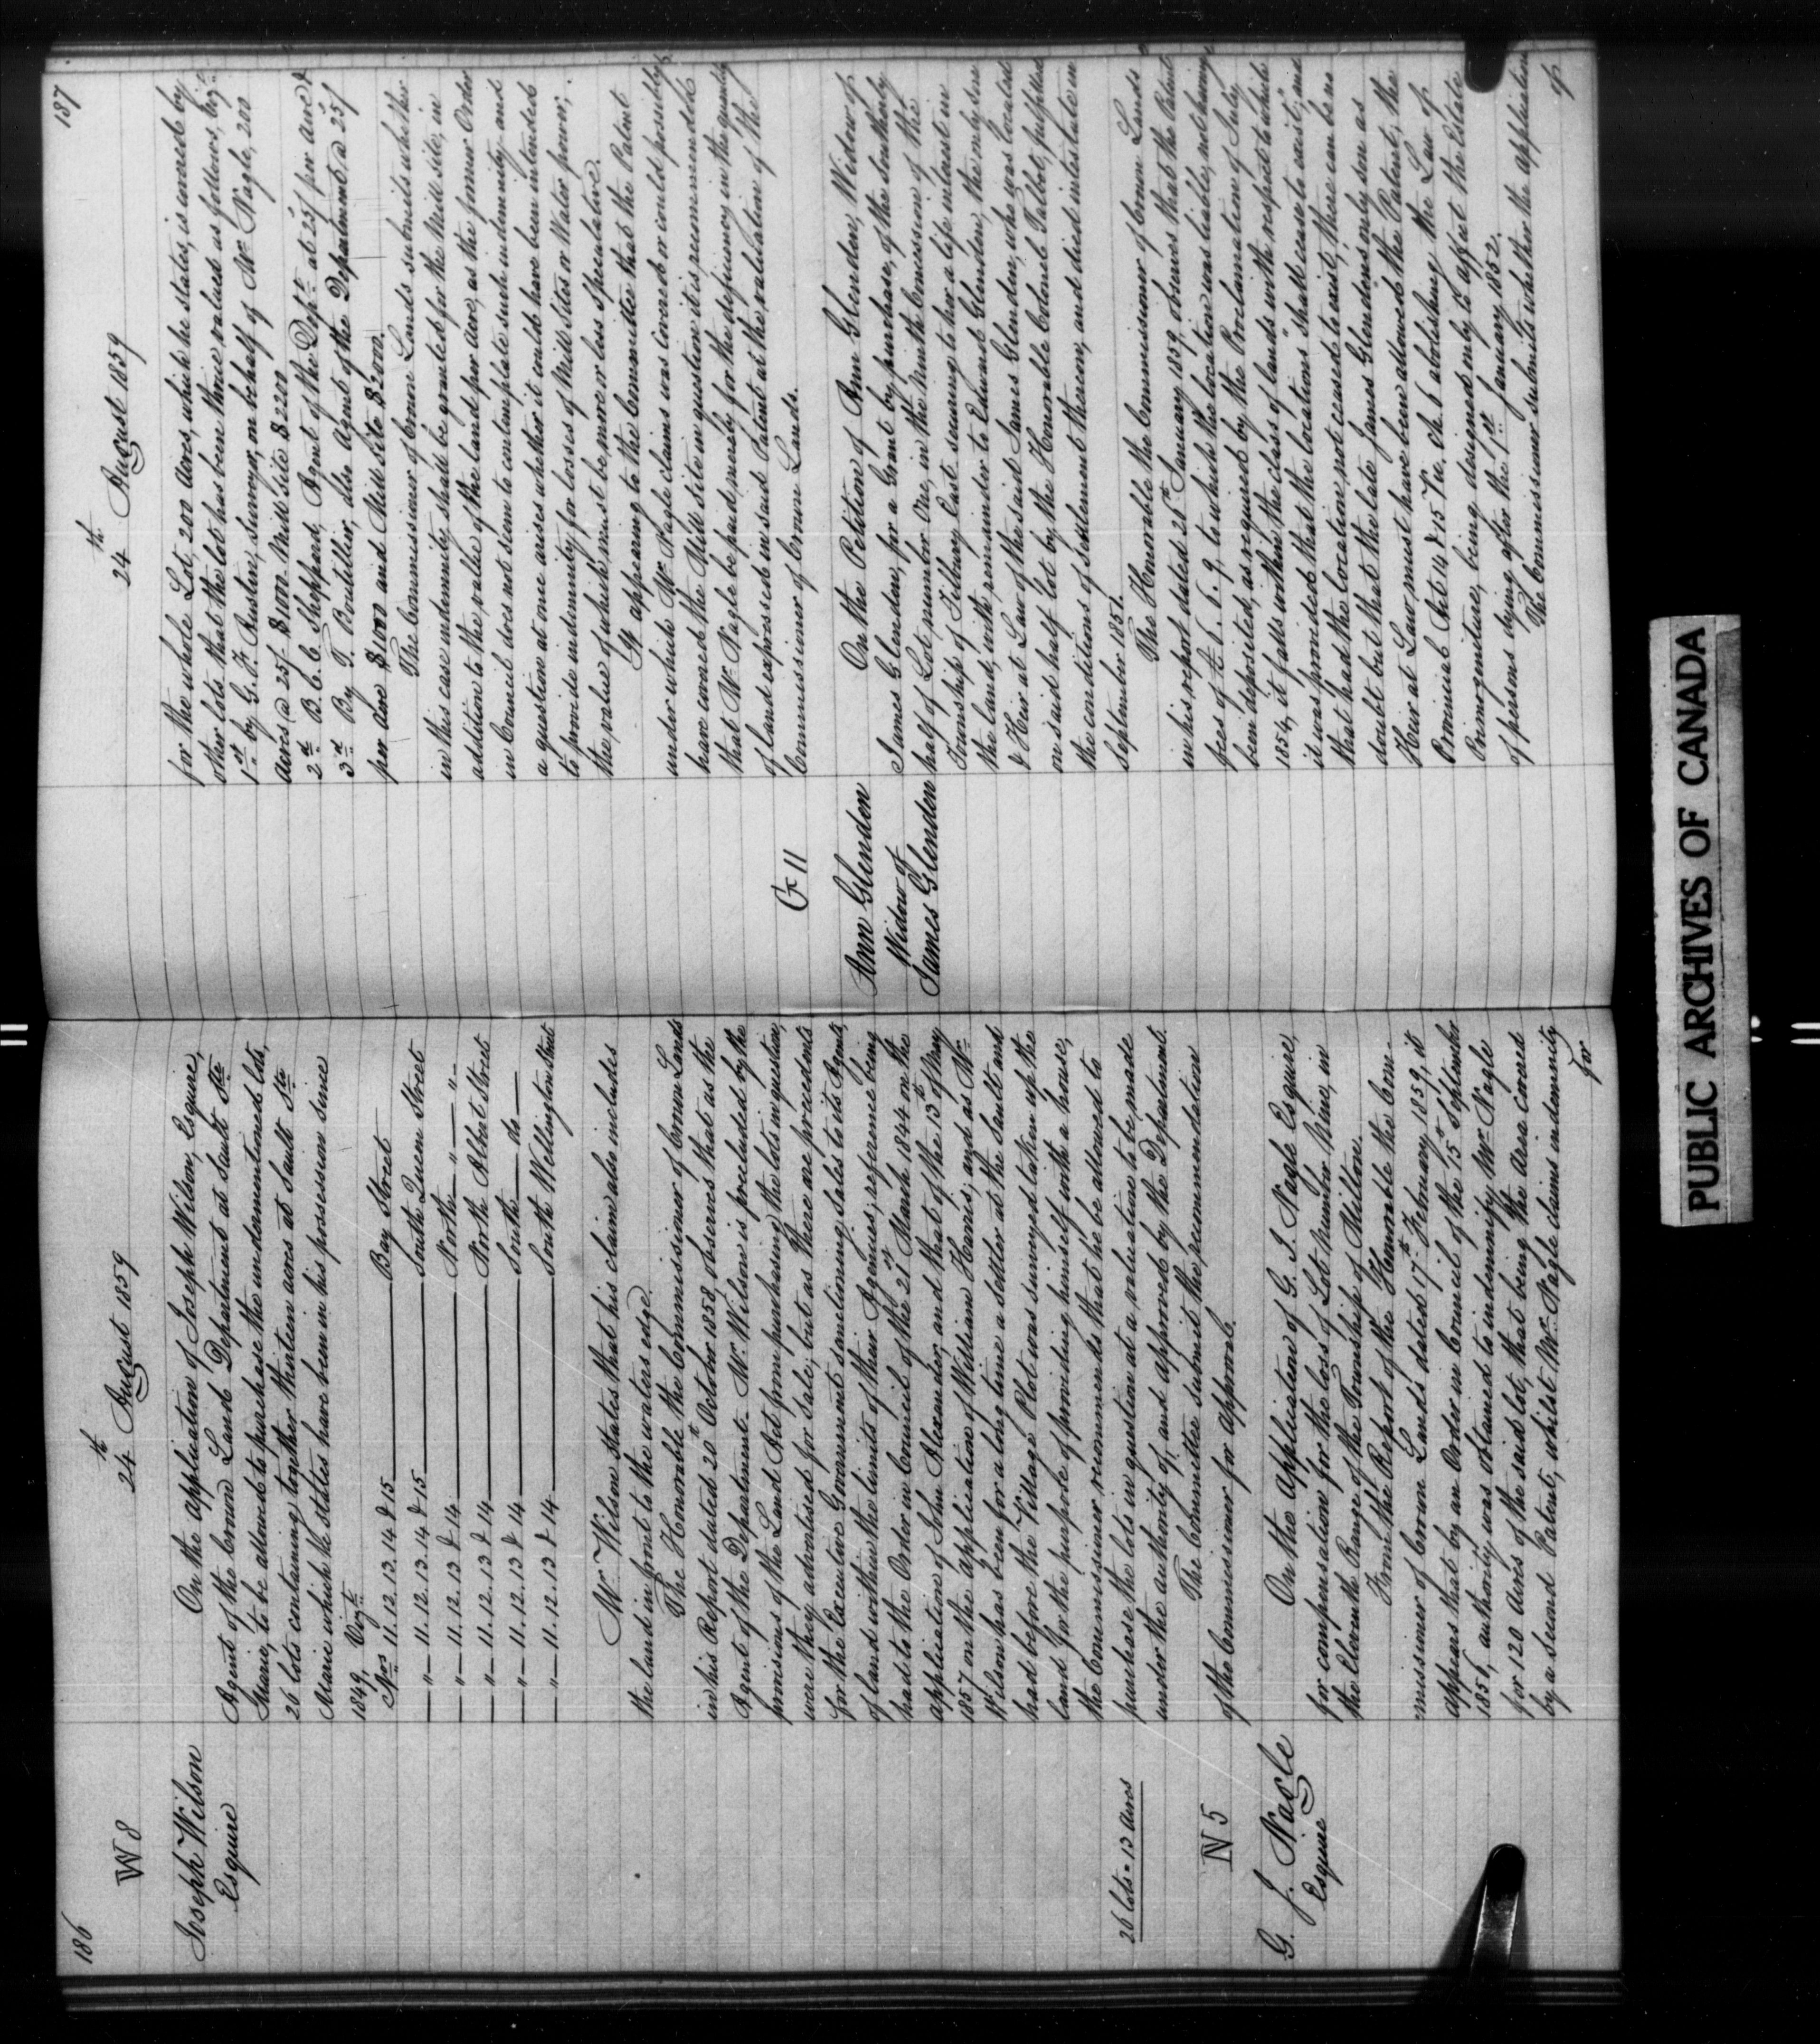 186
24th August 1859
W 8
Joseph Wilson
Esquire
On the Application of Joseph Wilson, Esquire,
Agent of the Crown Land Department at Sault Ste
Marie, to be allowed to purchase the undermentioned lots,
26 lots containing together thirteen acres at Sault Ste
Marie which he states have been in his possession since
1849, Vizt
Nos 11. 12. 13. 14 & 15 Bay Street
" 11. 12. 13. 14 & 15 South Queen Street
" 11. 12. 13 & 14 North " "
" 11. 12. 13 & 14 North Albert Street
" 11. 12. 13 & 14 South do
" 11. 12. 13 & 14 South Wellington Street
Mr Wilson States that his claim also includes
the land in front to the waters edge.
The Honorable the Commissioner of Crown Lands
in his Report dated 20th October 1858, observes that as the
Agent of the Department Mr Wilson is precluded by the
provisions of the Land Act from purchasing the lots in question,
were they advertised for Sale; but as there are precedents
for the Executive Government sanctioning Sales to its Agents
of land within the limits of their Agencies, reference being
had to the Order in Council of the 21st March 1844 on the
application of John Alexander, and that of the 13th of May
1857 on the Application of William Harris; and as Mr
Wilson has been for a long time a settler at the Sault and
had before the Village Plot was surveyed taken up the
land for the purpose of providing himself with a house,
the Commissioner recommends that he be allowed to
purchase the lots in question at a valuation to be made
under the authority of, and approved by the Department.
26 lots = 13 Acres
The Committee submit the recommendation
of the Commissioner for approval.
N 5
G. J. Nagle
Esquire
On the Application of G. J. Nagle Esquire,
for compensation for the loss of Lot Number Nine, in
the Eleventh Range of the Township of Milton.
From the Report of the Honorable the Com-
missioner of Crown Lands dated 17th February 1859, it
appears that by an Order in Council of the 15th September
1856, authority was obtained to indemnify Mr Nagle
for 120 Acres of the said lot, that being the Area covered
by a Second Patent, whilst Mr Nagle claims indemnity
for
187
24th August 1859
for the whole Lot, 200 Acres, which he states, is covered by
other lots that the lot has been thrice valued as follows, vizt
1st by G. F. Austin, Surveyor, on behalf of Mr Nagle, 200
Acres @ 25/- $1000 Mill Site $2200
2nd B. C. C. Sheppard, Agent of the Deptt at 25/ per Acre &
3rd By T. Boutillier, also Agent of the Department @ 25/
per Acre $1000 and Mill Site $2000.
The Commissioner of Crown Lands submits whether
in this case indemnity shall be granted for the Mill site, in
addition to the value of the land per Acre, as the former Order
in Council does not seem to contemplate such indemnity and
a question at once arises whether it could have been intended
to provide indemnity for losses of Mill Sites or Water power,
the value of which must be more or less Speculative.
It appearing to the Committee that the Patent
under which Mr Nagle claims was covered or could possibly
have covered the Mill Site in question it is recommended
that Mr Nagle be paid merely for the deficiency in the quantity
of land expressed in said Patent at the valuation of the
Commissioner of Crown Lands.
G 11
Ann Glendon
Widow of
James Glendon
On the Petition of Ann Glendon, Widow of
James Glendon, for a Grant by purchase, of the Southerly
half of Lot number One, in the Ninth Concession of the
Township of Tilbury East securing to her a life interest in
the land, with remainder to Edward Glendon, the only Son
& Heir at Law of the said James Glendon, who was located
on said half lot by the Honorable Colonel Talbot, fulfilled
the conditions of settlement thereon, and died intestate in
September 1851.
The Honorable the Commissioner of Crown Lands
in his report dated 25th January 1859, observes that the Patent
fees of £6. 6. 9, to which the location was liable, not having
been deposited, as required by the Proclamation of July
1854, it falls within the class of lands "with respect to which
it was provided that the locations "shall cease to exist," and
that had the location not ceased to exist, there can be no
doubt but that the late James Glendon's only son as
Heir at Law must have been allowed the Patent, the
Provincial Act 14 & 15 Vic, ch. 6 abolishing the Law of
Primogeniture, being designed only to affect the Estate
of persons dying after the 1st January 1852.
The Commissioner submits whether the application
of
PUBLIC ARCHIVES OF CANADA